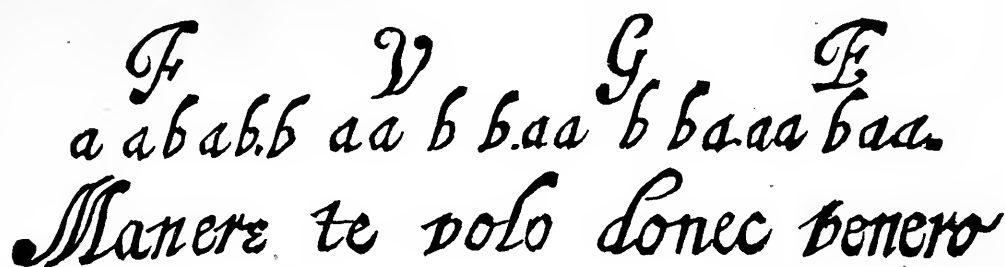 F V G E
a abab.b aa b b.aa b ba.aa baa.
Manere te volo donec venero